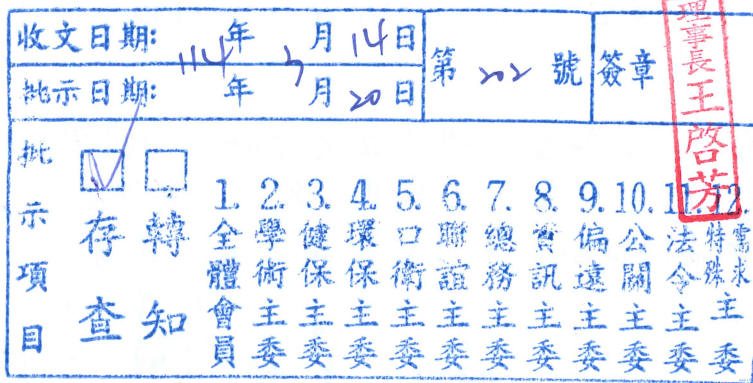 收文日期: 114年 3月 14日
批示日期: 年 月 20日
第 202 號
簽章
理事長王啓芳
批示項目
存查
轉知
1.全體會員
2.學術主委
3.健保主委
4.環保主委
5.口衛主委
6.聯誼主委
7.總務主委
8.資訊主委
9.偏遠主委
10.公關主委
11.法令主委
12.特殊需求主委